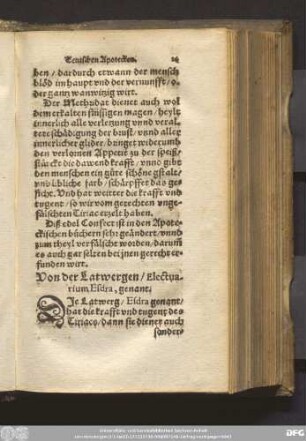 Teutschen Apotecken. 24
ben / dardurch etwann der mensch
blöd im haupt vnd der vernunfft / o,
der gantz wanwitzig wirt.
Der Methridat dienet auch wol
dem erkalten magen / heylt
innerlich alle verletzung vnnd veral,
tete schädigung der brust / vnnd aller
innerlicher glider / bringet widerumb
den verlornen Appetit zu der speiß/
stärckt die dawend krafft / vnnd gibt
den menschen ein gůte schöne gstalt/
vnd libliche farb / schärpffet das ge,
sichte. Vnd hat weitter die krafft vnd
tugent / so wir vom gerechten vnge,
fälschten Tiriac erzelt haben.
Diß edel Confect ist in den Apote,
ckischen büchern sehr geändert / vnnd
zum theyl verfälscht worden / darumb
es auch gar selten bei jnen gerecht er,
funden wirt.
Von der Latwergen / Electua,
rium Esdra, genant.
Die Latwerg / Esdra genant/
hat die krafft vnd tugent des
Tiriacs / dann sie dienet auch
sonder,